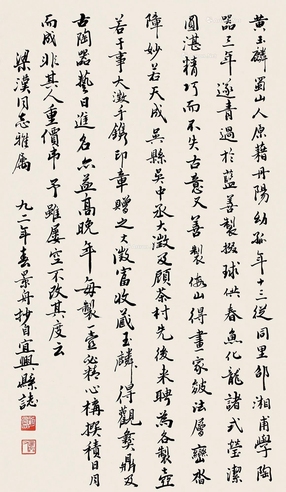 黄玉麟蜀山人原籍丹陽幼孤年十三從同里邵湘甫學陶
器三年遂青過於藍善製掇球供春魚化龍諸式瑩潔
圓湛精巧而不失古意又善製假山得畫家皴法層巒沓
障妙若天成吳縣吳中丞大澂及顧茶村先後来聘為各製壺
若干事大澂手鐫印章贈之大澂富收藏玉麟得觀彝鼎及
古陶器藝日進名亦益高晚年每製一壺必精心構撰積日月
而成非其人重價弗予雖屢空不改其度云
梁漢同志雅屬
九二年春景舟抄自宜興縣誌